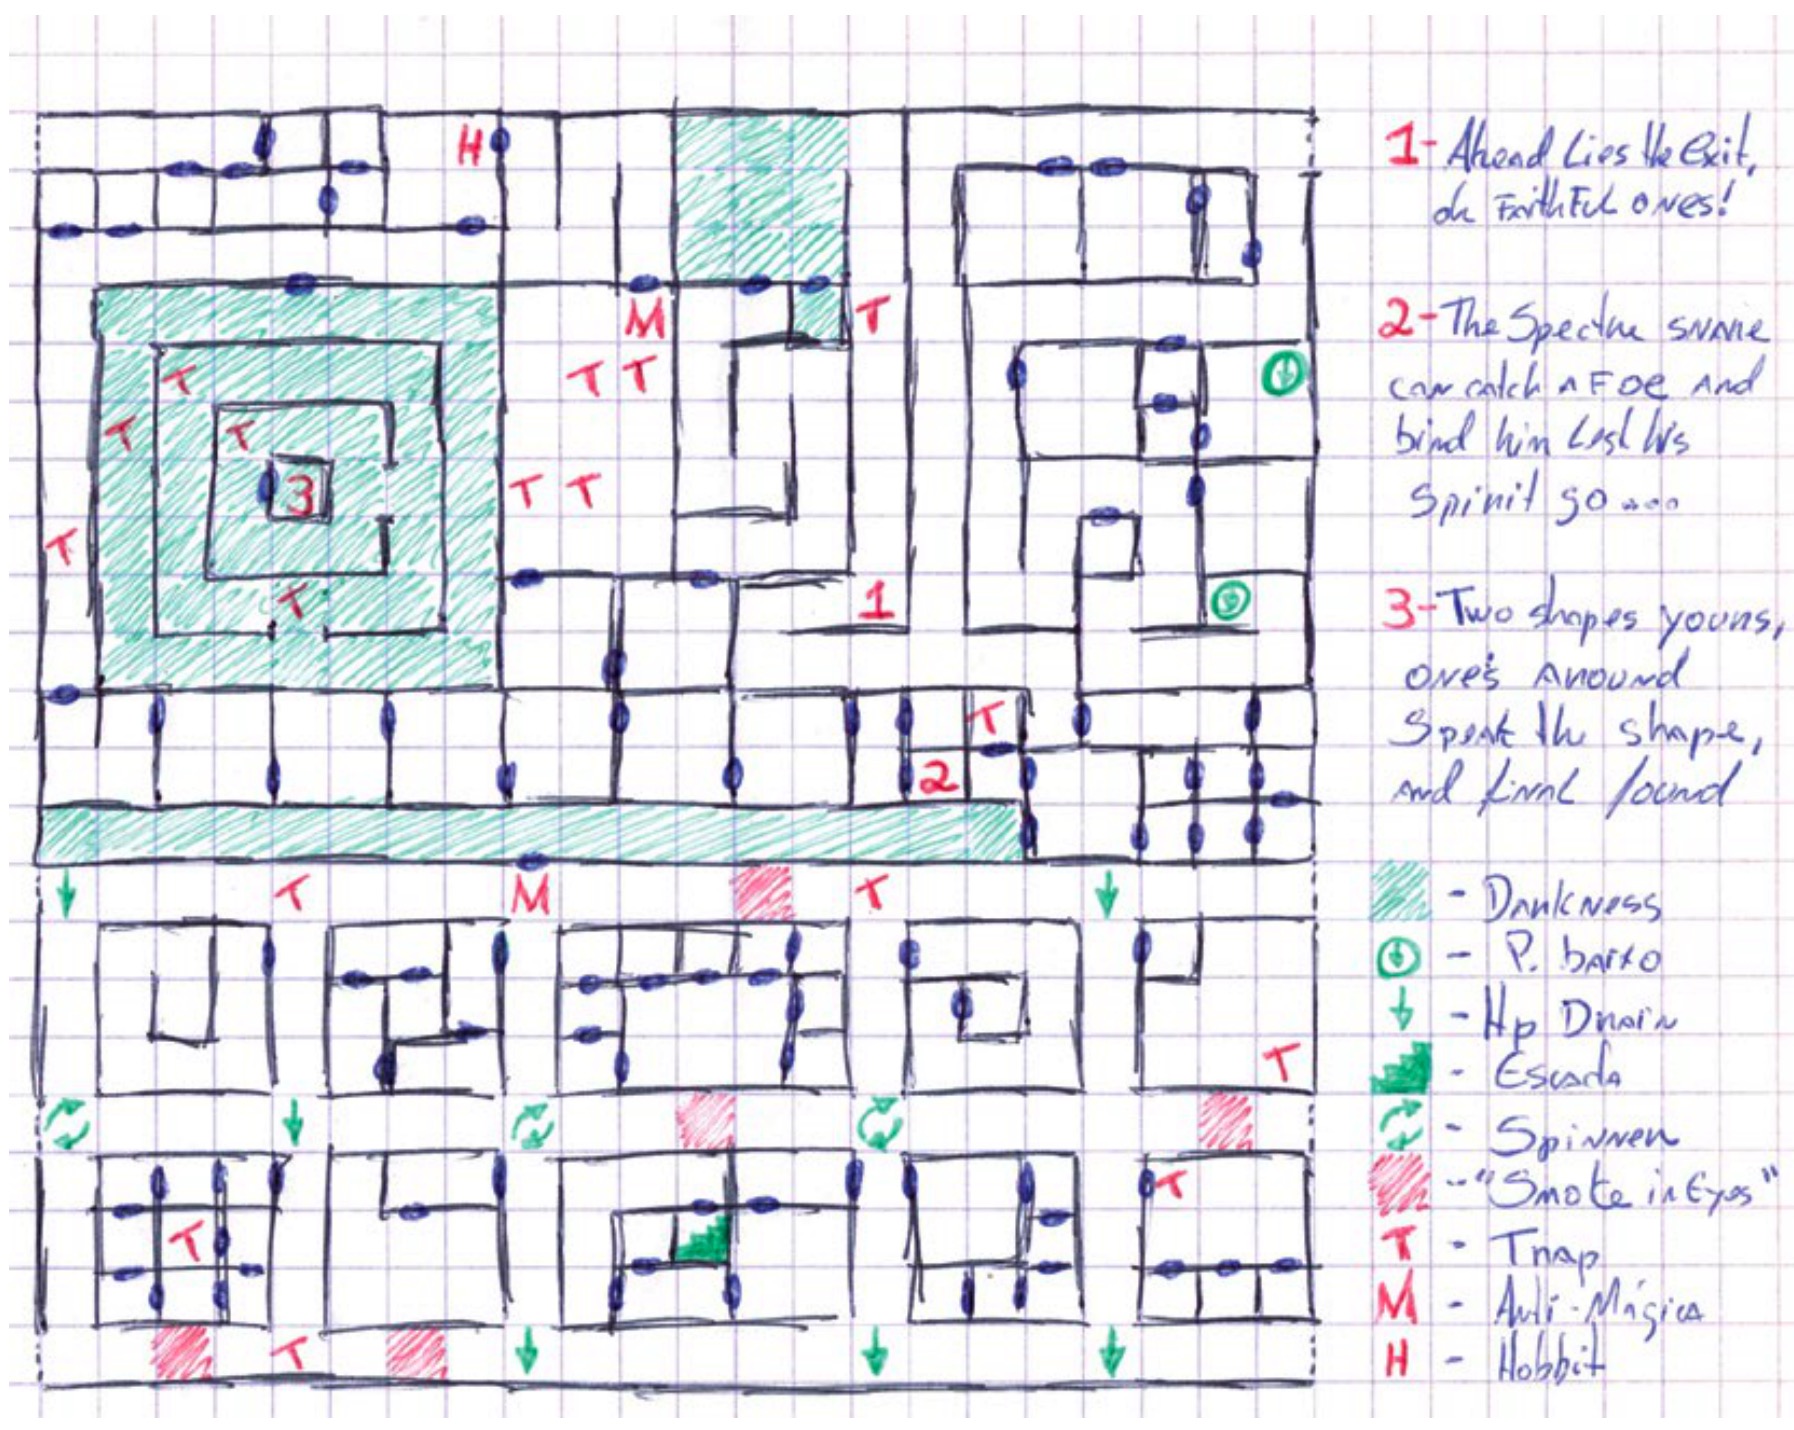 H
M T
T T T
T T
3 T T
T
T 1
T
2
T M T
T
T
T
T
1- Ahead Lies the Exit,
oh Faithful ones!
2- The Spectre snare
can catch a Foe and
bind him Lest his
Spirit go ....
3- Two shapes yours,
one's around
Speak the shape,
and final found
- Darkness
- P. baixo
- Hp Drain
- Escada
- Spinner
- "Smoke in Eyes"
T - Trap
M - Anti-Mágica
H - Hobbit